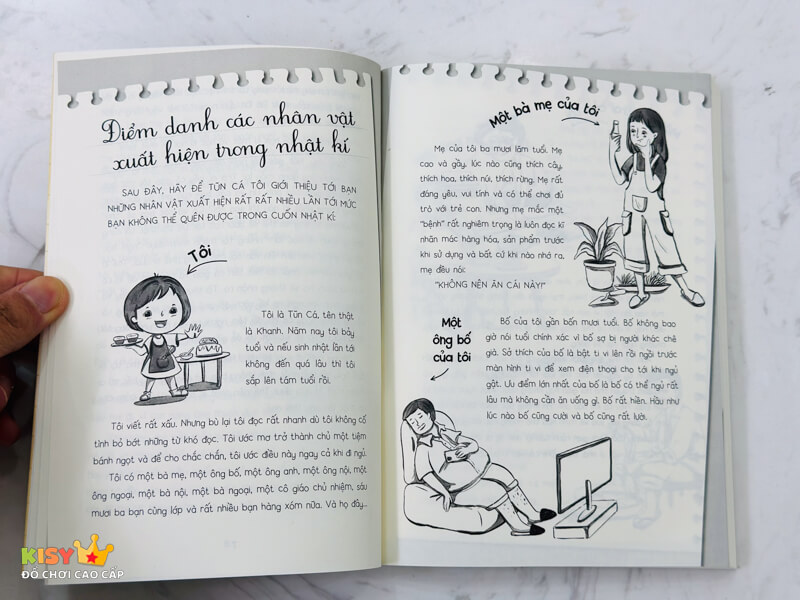 Điểm danh các nhân vật
xuất hiện trong nhật kí
SAU ĐÂY, HÃY ĐỂ TŨN CÁ TÔI GIỚI THIỆU TỚI BẠN
NHỮNG NHÂN VẬT XUẤT HIỆN RẤT RẤT NHIỀU LẦN TỚI MỨC
BẠN KHÔNG THỂ QUÊN ĐƯỢC TRONG CUỐN NHẬT KÍ:
Tôi
Tôi là Tũn Cá, tên thật
là Khanh. Năm nay tôi bảy
tuổi và nếu sinh nhật lần tới
không đến quá lâu thì tôi
sắp lên tám tuổi rồi.
Tôi viết rất xấu. Nhưng bù lại tôi đọc rất nhanh dù tôi không cố
tình bỏ bớt những từ khó đọc. Tôi ước mơ trở thành chủ một tiệm
bánh ngọt và để cho chắc chắn, tôi ước điều này ngay cả khi đi ngủ.
Tôi có một bà mẹ, một ông bố, một ông anh, một ông nội, một
ông ngoại, một bà nội, một bà ngoại, một cô giáo chủ nhiệm, sáu
mươi ba bạn cùng lớp và rất nhiều bạn hàng xóm nữa. Và họ đây...
Một bà mẹ của tôi
Mẹ của tôi ba mươi lăm tuổi. Mẹ
cao và gầy, lúc nào cũng thích cây,
thích hoa, thích núi, thích rừng. Mẹ rất
đáng yêu, vui tính và có thể chơi đủ
trò với trẻ con. Nhưng mẹ mắc một
"bệnh" rất nghiêm trọng là luôn đọc kĩ
nhãn mác hàng hóa, sản phẩm trước
khi sử dụng và bất cứ khi nào nhớ ra,
mẹ đều nói:
"KHÔNG NÊN ĂN CÁI NÀY!"
Một
ông bố
của tôi
Bố của tôi gần bốn mươi tuổi. Bố không bao
giờ nói tuổi chính xác vì bố sợ bị người khác chê
già. Sở thích của bố là bật ti vi lên rồi ngồi trước
màn hình ti vi để xem điện thoại cho tới khi ngủ
gật. Ưu điểm lớn nhất của bố là bố có thể ngủ rất
lâu mà không cần ăn uống gì. Bố rất hiền. Hầu như
lúc nào bố cũng cười và bố cũng rất lười.
KISY
ĐỒ CHƠI CAO CẤP